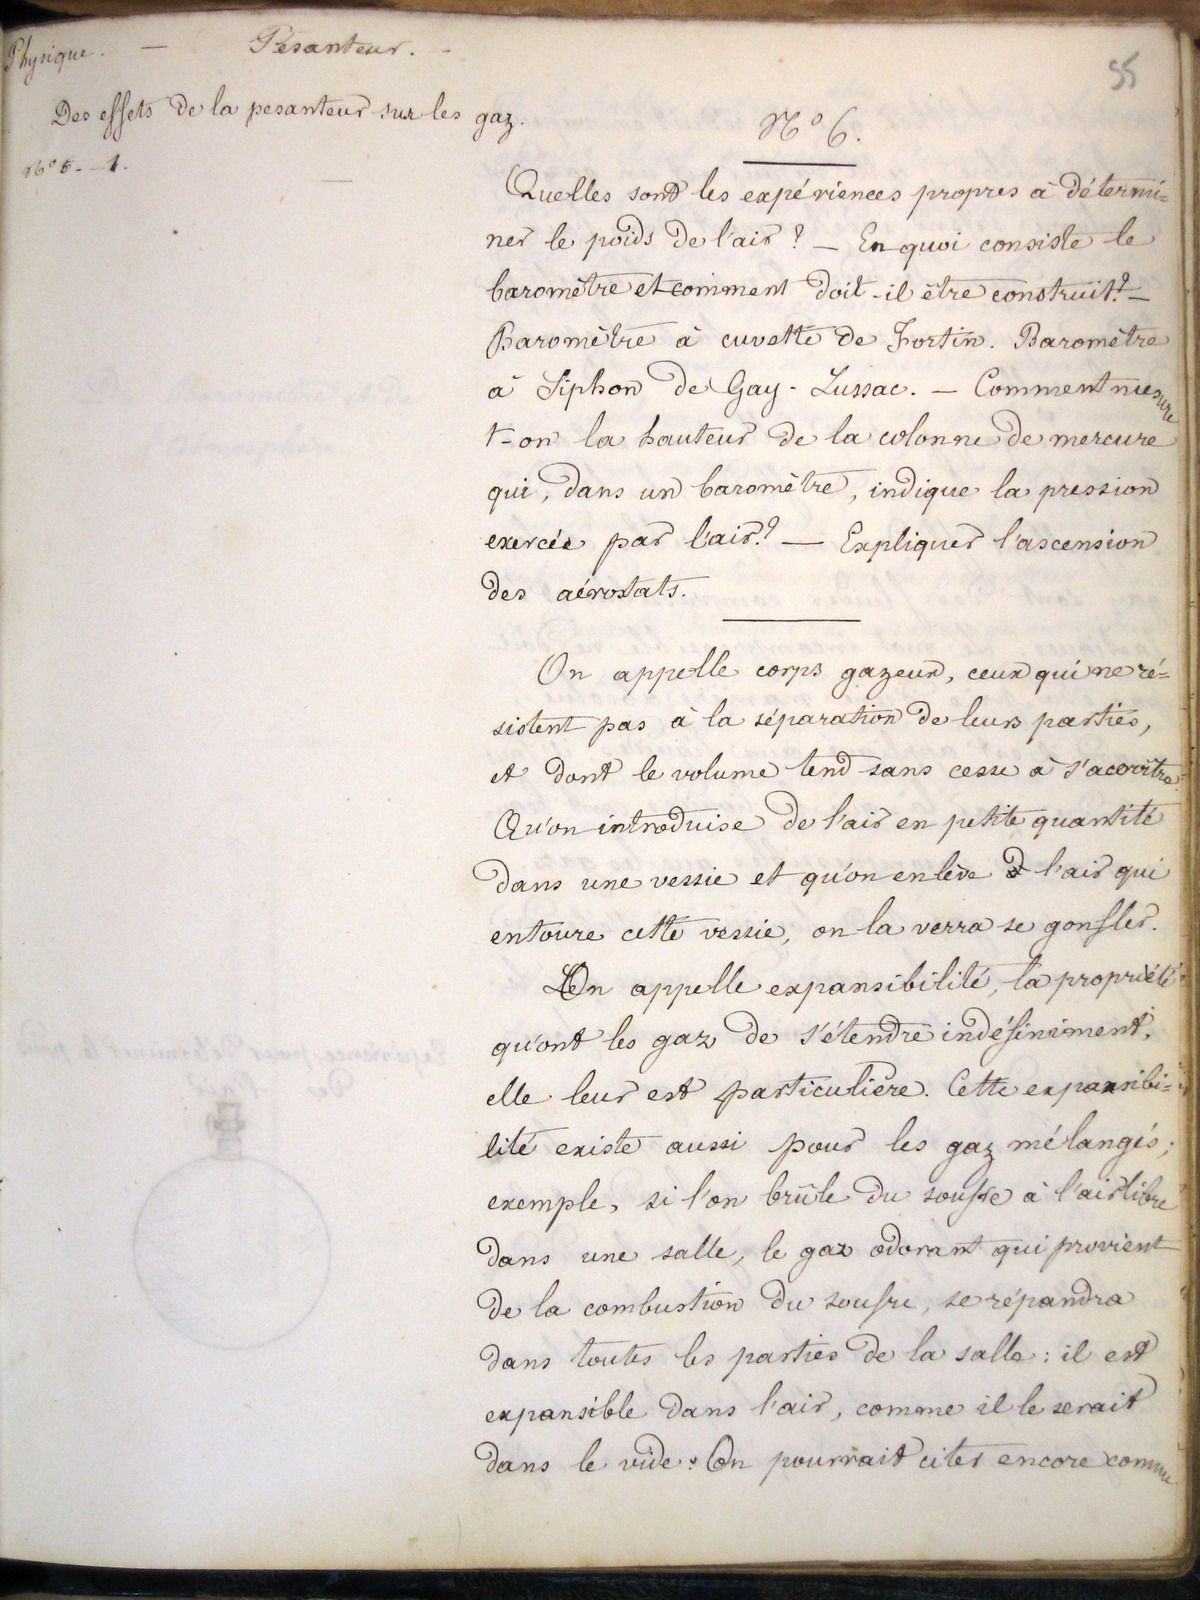 Physique. — Pésanteur. -
55
Des effets de la pesanteur sur les gaz.
N° 6. - 1.
N° 6.
Quelles sont les expériences propres à détermi=
ner le poids de l'air ? — En quoi consiste le
baromètre et comment doit-il être construit ? —
Baromètre à cuvette de Fortin. Baromètre
à Siphon de Gay-Lussac. — Comment mesure
t-on la hauteur de la colonne de mercure
qui, dans un baromètre, indique la pression
exercée par l'air ? — Expliquer l'ascension
des aérostats.
On appelle corps gazeux, ceux qui ne ré=
sistent pas à la séparation de leurs parties,
et dont le volume tend sans cesse à s'accroître.
Qu'on introduise de l'air en petite quantité
dans une vessie et qu'on enlève l'air qui
entoure cette vessie, on la verra se gonfler.
On appelle expansibilité, la propriété
qu'ont les gaz de s'étendre indéfiniment,
elle leur est particulière. Cette expansibi=
lité existe aussi pour les gaz mélangés ;
exemple, si l'on brûle du soufre à l'air libre
dans une salle, le gaz odorant qui provient
de la combustion du soufre, se répandra
dans toutes les parties de la salle : il est
expansible dans l'air, comme il le serait
dans le vide. On pourrait citer encore comme